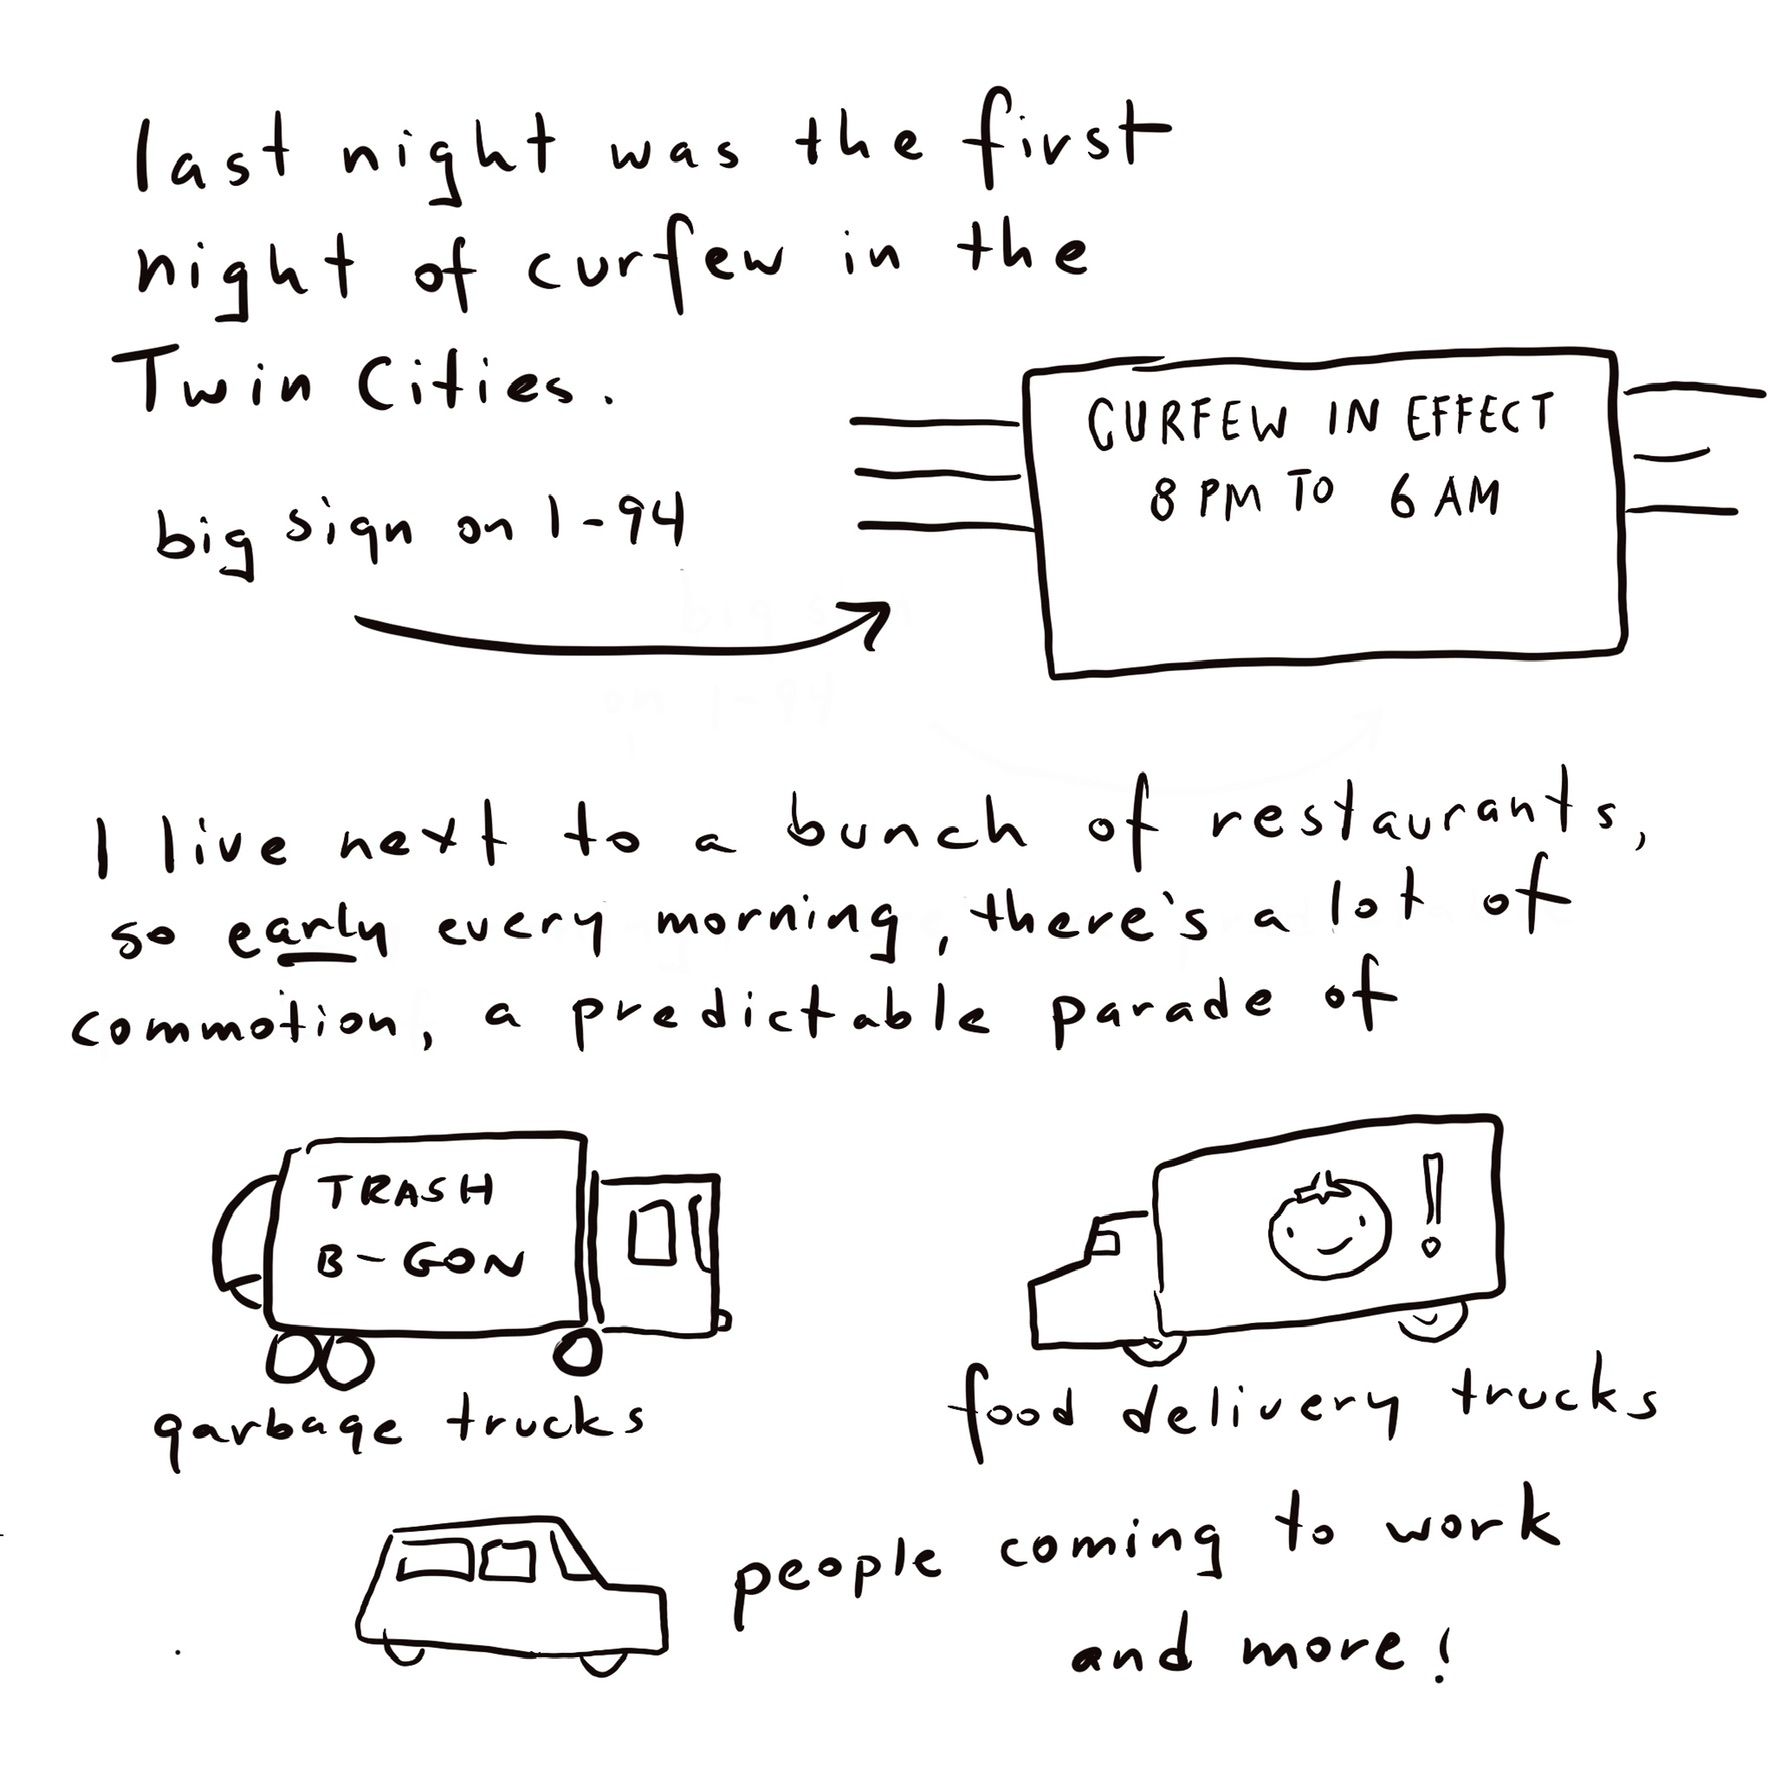 last night was the first
night of curfew in the
Twin Cities.
CURFEW IN EFFECT
8 PM TO 6 AM
big sign on I-94
I live next to a bunch of restaurants,
so early every morning, there's a lot of
commotion, a predictable parade of
TRASH
B-GON
!
garbage trucks
food delivery trucks
people coming to work
and more!